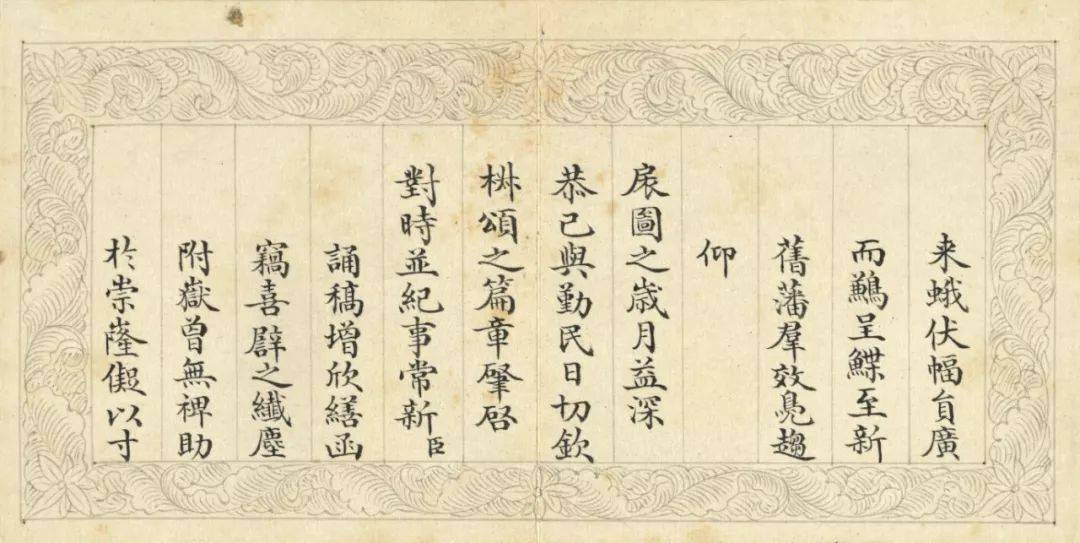 来蛾伏幅貟廣
而鶼呈鰈至新
舊藩羣效鳧趨
仰
扆圖之歲月益深
恭己與勤民日切欽
椒頌之篇章肈啓
對時並紀事常新臣
誦稿增欣繕函
竊喜譬之纖塵
附嶽曾無裨助
於崇隆儗以寸